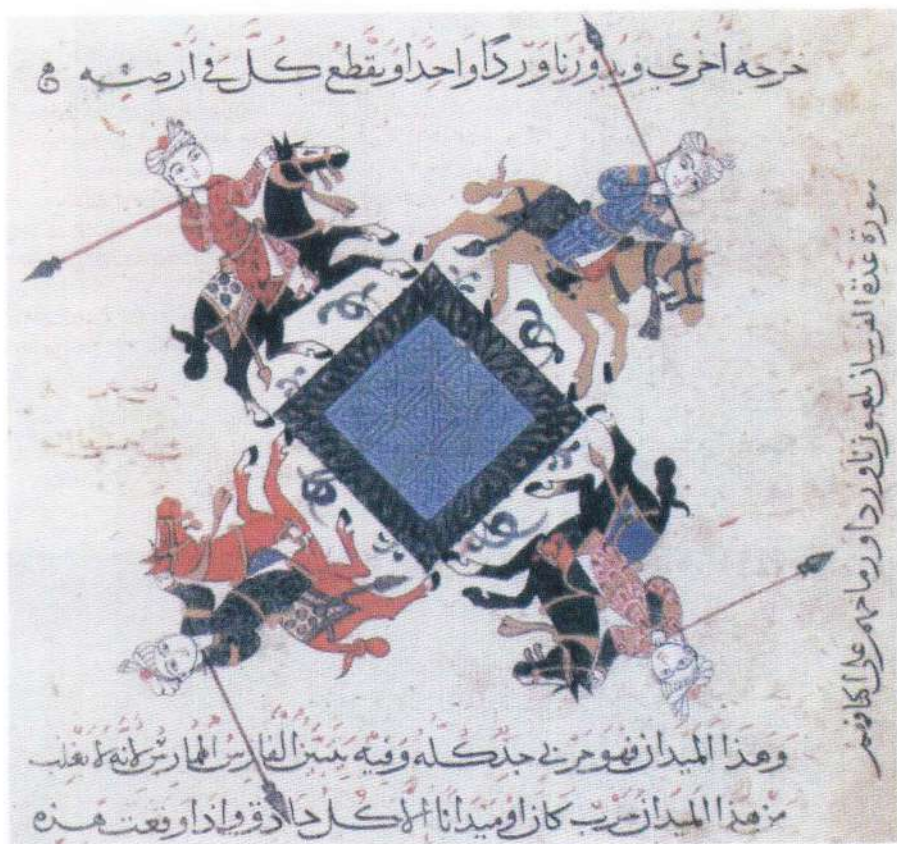 خرجه اخرى ويدورنا ورداً واحداً ويقطع كل في ارضه
صورة عدة الفرسان يلعبون ناورد اورماحهم على اكتافهم
وهذا الميدان فهو حربي جد كله وفيه يتبين الفارس الممارس لانه لا يغلب
من هذا الميدان حرب كان او ميدانا الا كل حاذق واذا وقعت هذه